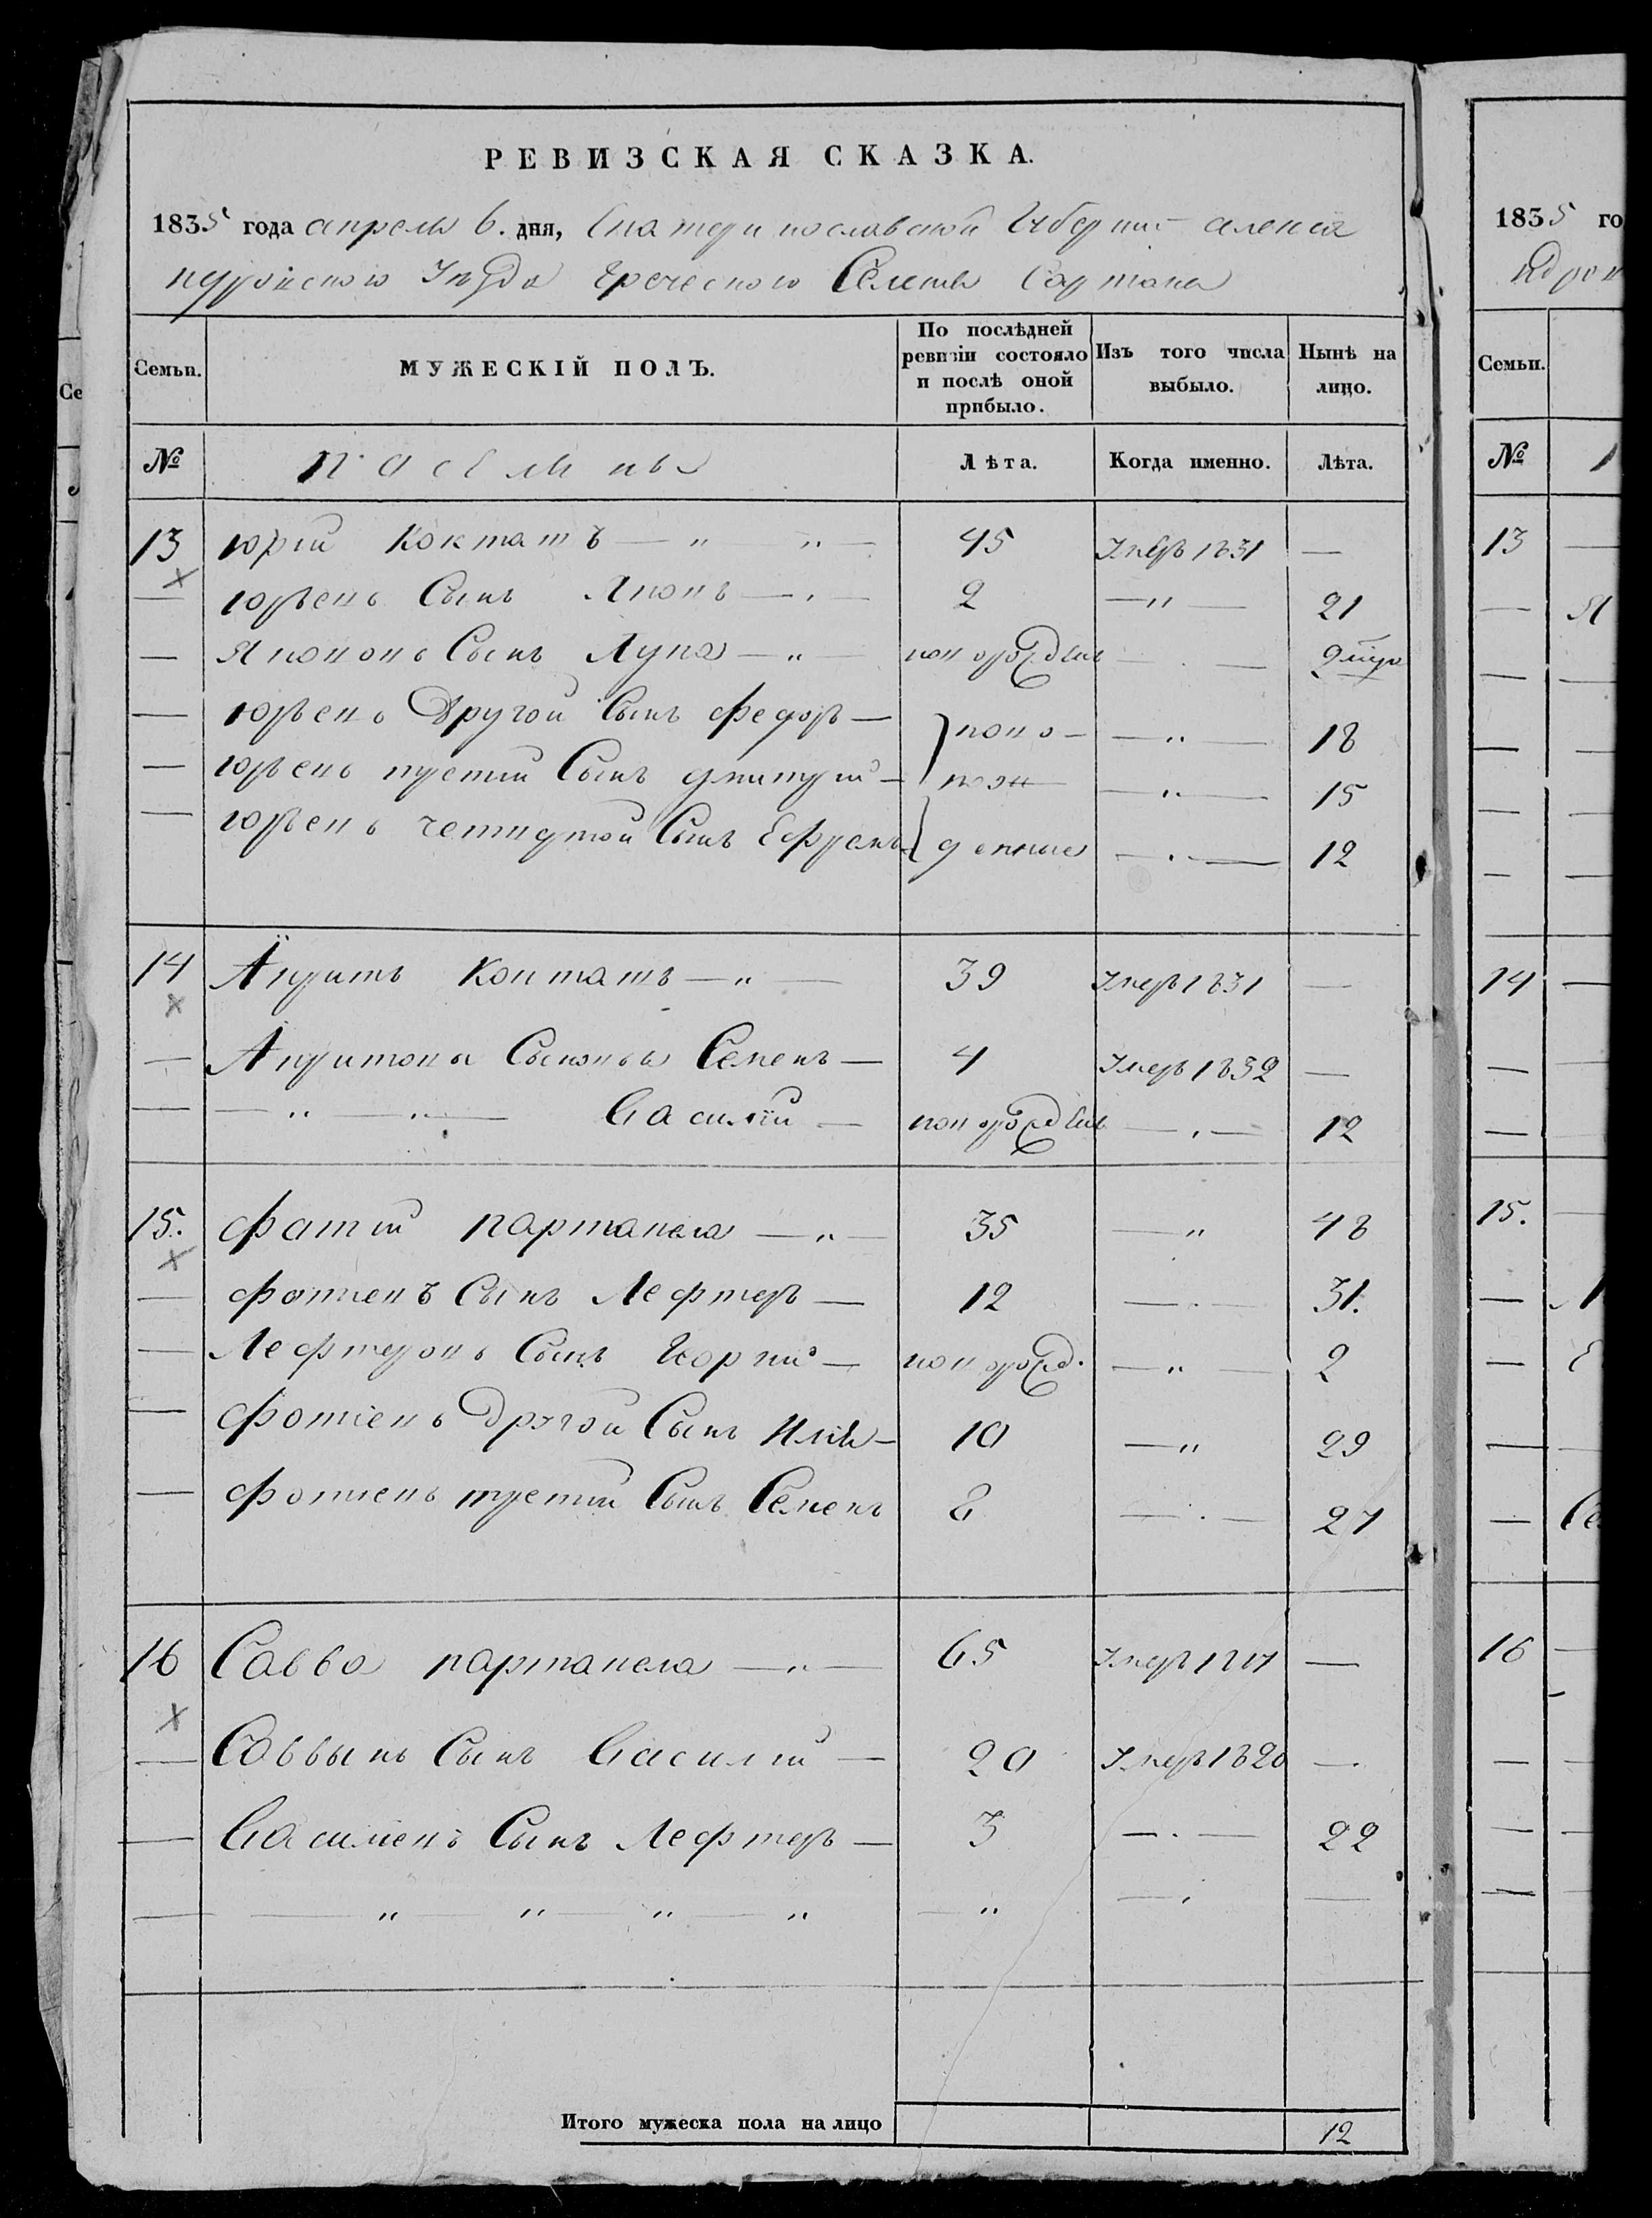 РЕВИЗСКАЯ СКАЗКА.
1835 года апреля 6. дня, Екатеринославской Губерніи алекса
ндровского Уезда Греческого Селенія Сартана
Семьи.
МУЖЕСКІЙ ПОЛЪ.
По послѣдней ревизіи состояло и послѣ оной прибыло.
Изъ того числа выбыло.
Нынѣ на лицо.
№
Поселяне
Лѣта.
Когда именно.
Лѣта.
13 юрій Кокташъ — " " — 45 Умеръ 1831 —
— юрьевъ Сынъ Яковъ — . — 2 — " — 21
— Яковов Сынъ Лука — " — новорожден — . — 2
— юрьевъ Другой Сынъ Федоръ — ново — " — 18
— юрьевъ третій Сынъ дмитрій — рож — " — 15
— юрьевъ четвертой Сынъ Ефремъ — денные — . — 12
14 Апритъ Кокташъ — " — 39 Умеръ 1831 —
— Апритовы Сыновья Семенъ — 4 Умеръ 1832 —
— — " — " — Василій — новорожден — . — 12
15. фатій партанела — " — 35 — " 48
— фотіевъ Сынъ Лефтеръ — 12 — . — 31.
— Лефтеровъ Сынъ Георгій — новорожд. — " — 2
— фотіевъ Другой Сынъ Илія — 10 — " 29
— фотіевъ третій Сынъ Семенъ 8 — . — 27
16 Савва партанела — " — 65 Умеръ —
— Саввынъ Сынъ Василій — 20 Умеръ —
— Василіевъ Сынъ Лефтеръ — 3 — . — 22
— — " — " — " — " — " — . —
Итого мужеска пола на лицо 12
1835 го
ндров
Семьи.
№
13
14
15.
16